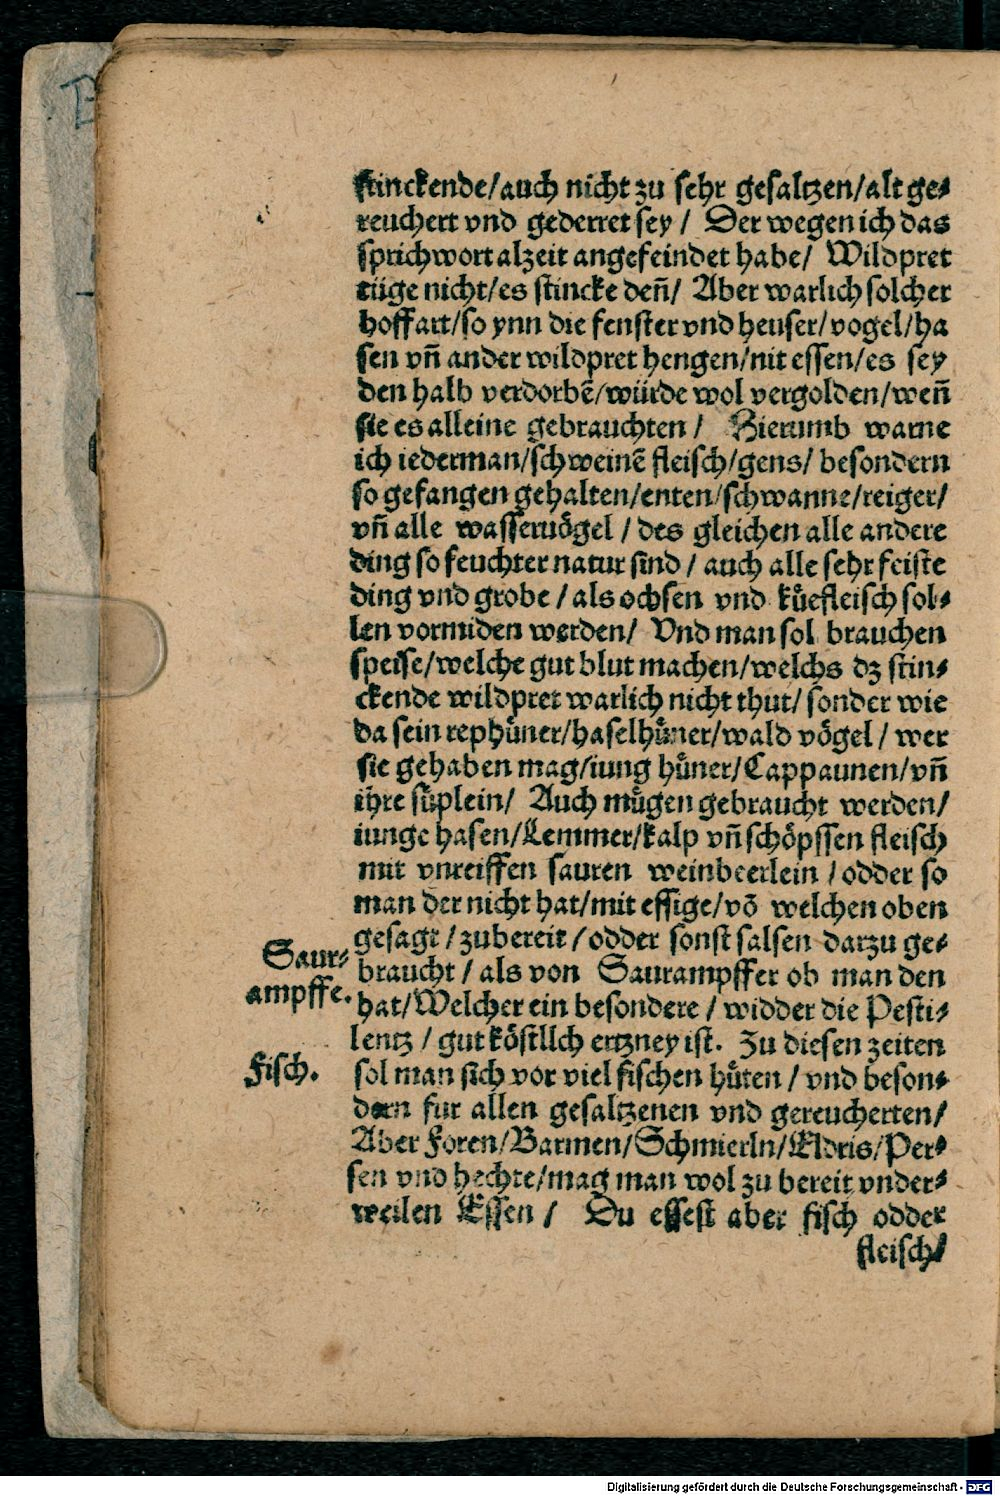 stinckende/auch nicht zu sehr gesaltzen/alt ge⸗
reuchert vnd gederret sey / Der wegen ich das
sprichwort alzeit angefeindet habe/ Wildpret
tüge nicht/es stincke deñ/ Aber warlich solcher
hoffart/so ynn die fenster vnd heuser/vogel/ha
sen vñ ander wildpret hengen/nit essen/es sey
den halb verdorbẽ/würde wol vergolden/weñ
sie es alleine gebrauchten / Hierumb warne
ich iederman/schweinẽ fleisch/gens/ besondern
so gefangen gehalten/enten/schwanne/reiger/
vñ alle wasseruögel / des gleichen alle andere
ding so feuchter natur sind / auch alle sehr feiste
ding vnd grobe / als ochsen vnd küefleisch sol⸗
len vormiden werden/ Vnd man sol brauchen
speise/welche gut blut machen/welchs dz stin⸗
ckende wildpret warlich nicht thut/ sonder wie
da sein rephüner/haselhüner/wald vögel / wer
sie gehaben mag/iung hüner/Cappaunen/vñ
ihre süplein/ Auch mügen gebraucht werden/
iunge hasen/Lemmer/kalp vñ schöpssen fleisch
mit vnreiffen sauren weinbeerlein / odder so
man der nicht hat/mit essige/võ welchen oben
gesagt / zubereit / odder sonst salsen darzu ge⸗
braucht / als von Saurampffer ob man den
hat/Welcher ein besondere / widder die Pesti⸗
lentz / gut köstllch ertzney ist. Zu diesen zeiten
sol man sich vor viel fischen hüten / vnd beson⸗
dern fur allen gesaltzenen vnd gereucherten/
Aber Foren/Barmen/Schmerln/Eldris/Per⸗
sen vnd hechte/mag man wol zu bereit vnder⸗
weilen Essen / Du essest aber fisch odder
fleisch/
Saur⸗
ampffe.
Fisch.
Digitalisierung gefördert durch die Deutsche Forschungsgemeinschaft - DFG